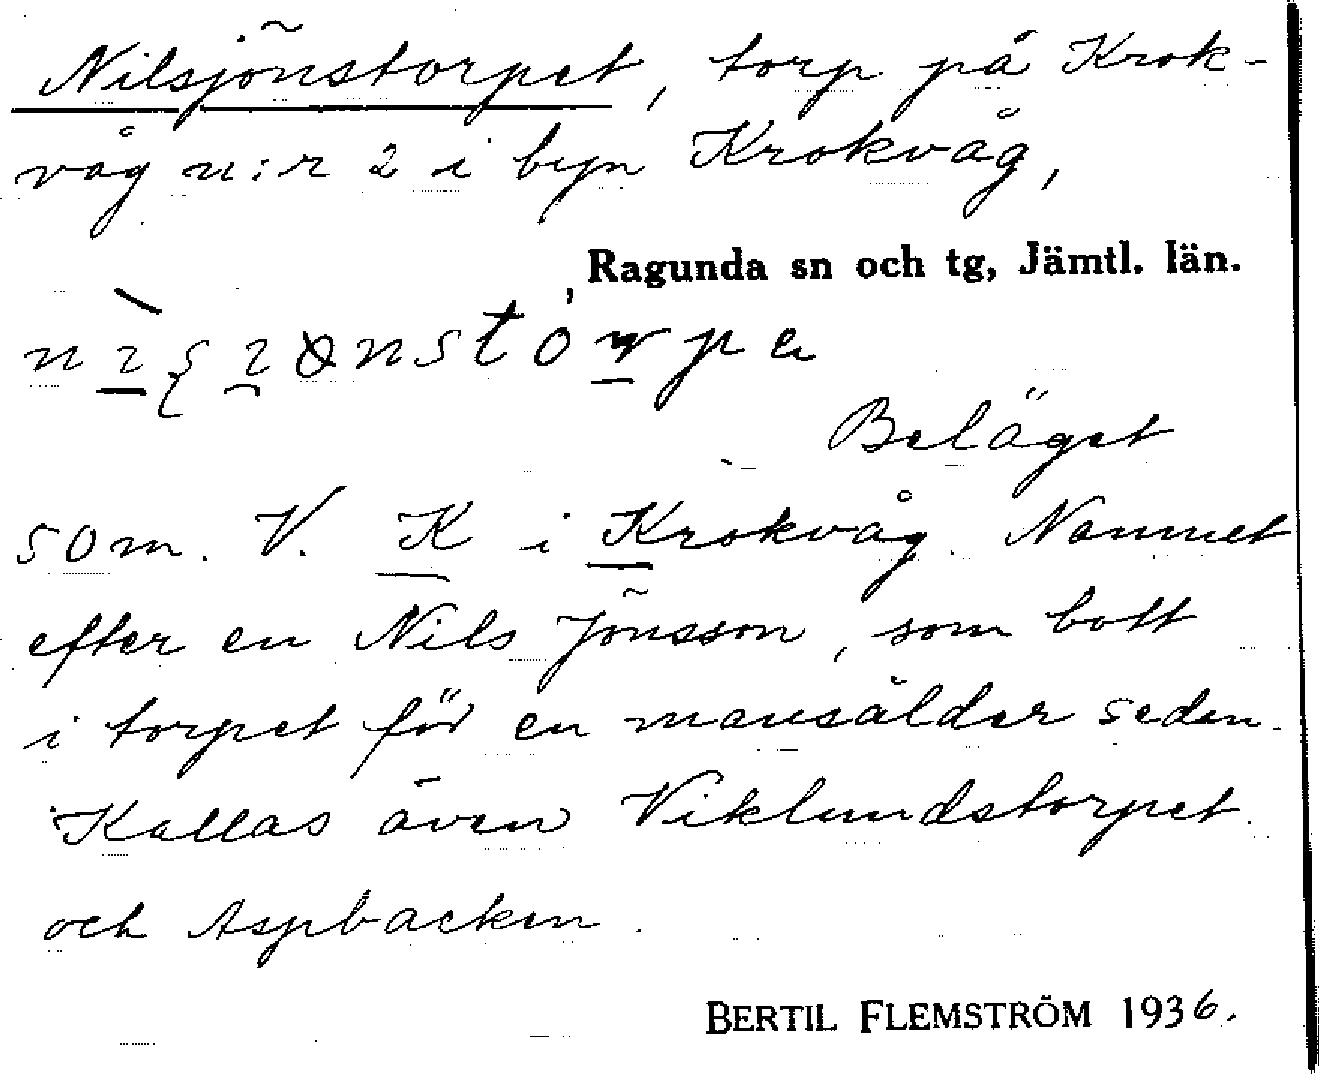 Nilsjönstorpet, torp på Krok-
våg n:r 2 i byn Krokvåg,
Ragunda sn och tg, Jämtl. län.
Beläget
som. V. K i Krokvåg. Namnet
efter en Nils Jönsson, som bott
i torpet för en mansålder sedan.
Kallas även Viklundstorpet
och Aspbacken.
BERTIL FLEMSTRÖM 1936.